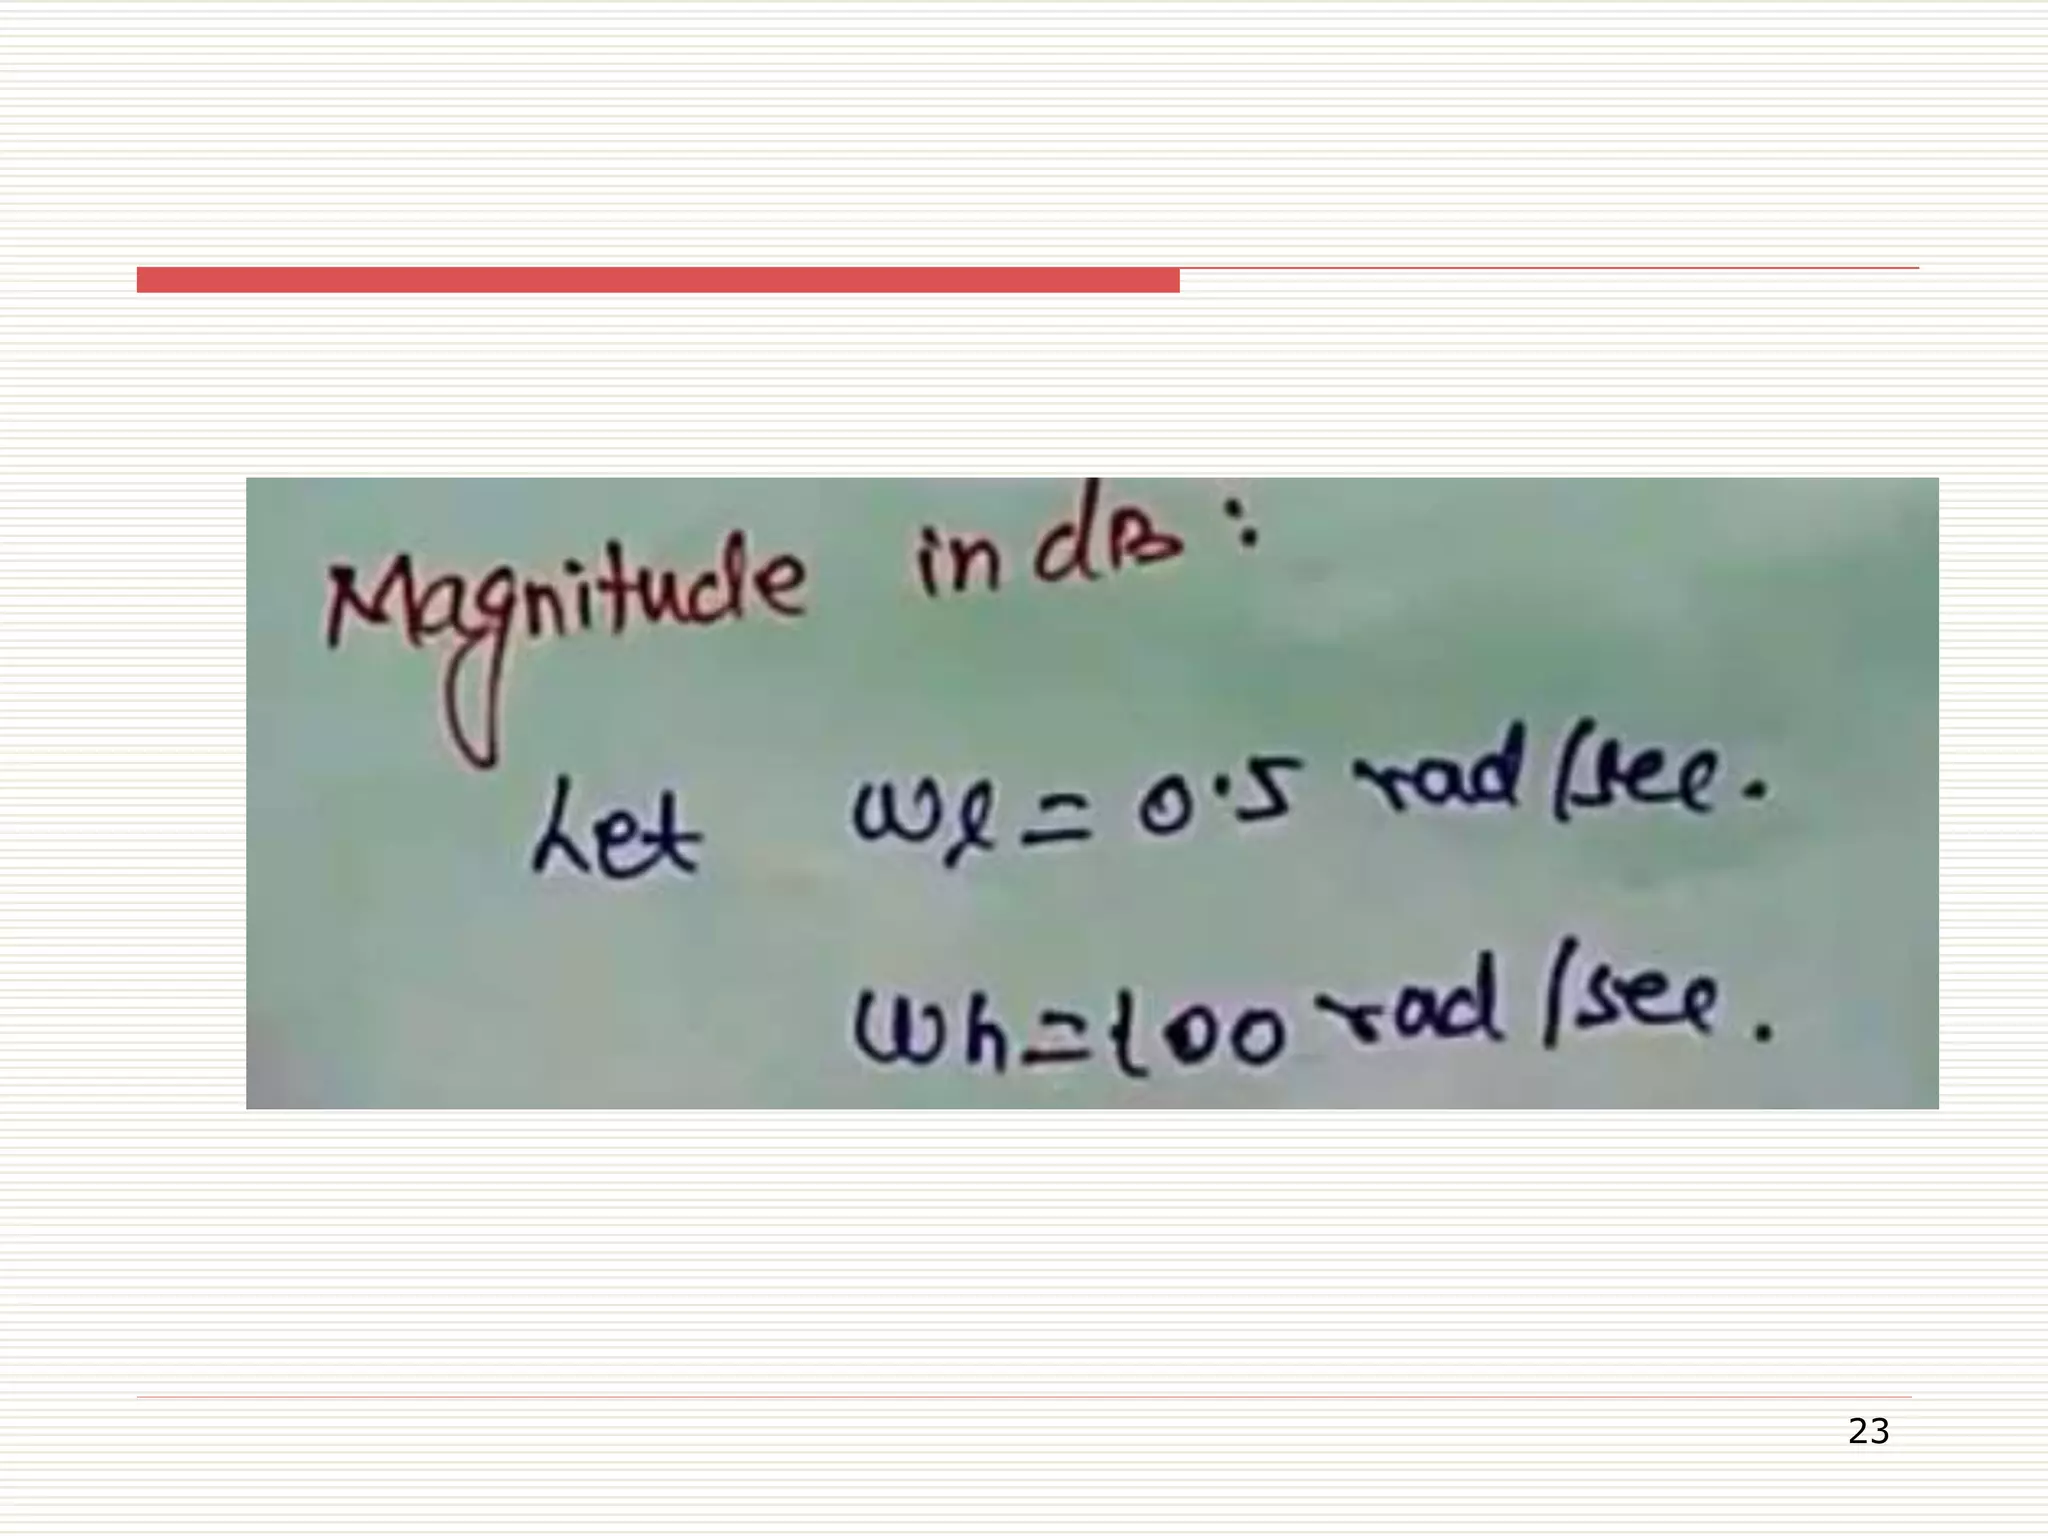 Magnitude in dB :
Let ωl = 0.5 rad/sec.
ωh = 100 rad/sec.
23